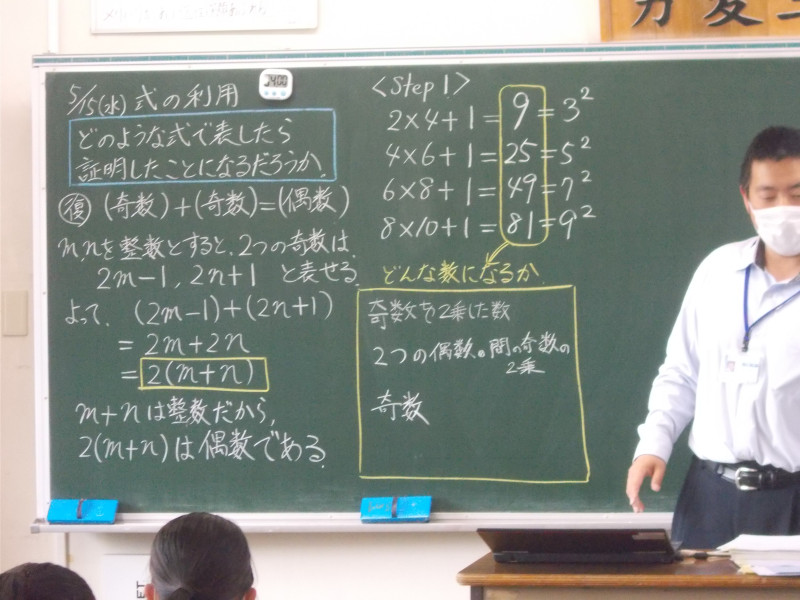 5/15(水) 式の利用
どのような式で表したら
証明したことになるだろうか。
復 (奇数)+(奇数)=(偶数)
m,nを整数とすると、2つの奇数は、
2m-1, 2n+1 と表せる。
よって、(2m-1)+(2n+1)
=2m+2n
=2(m+n)
m+nは整数だから、
2(m+n)は偶数である。
<Step 1>
2×4+1=9=3²
4×6+1=25=5²
6×8+1=49=7²
8×10+1=81=9²
どんな数になるか。
奇数を2乗した数
2つの偶数の間の奇数の
2乗
奇数